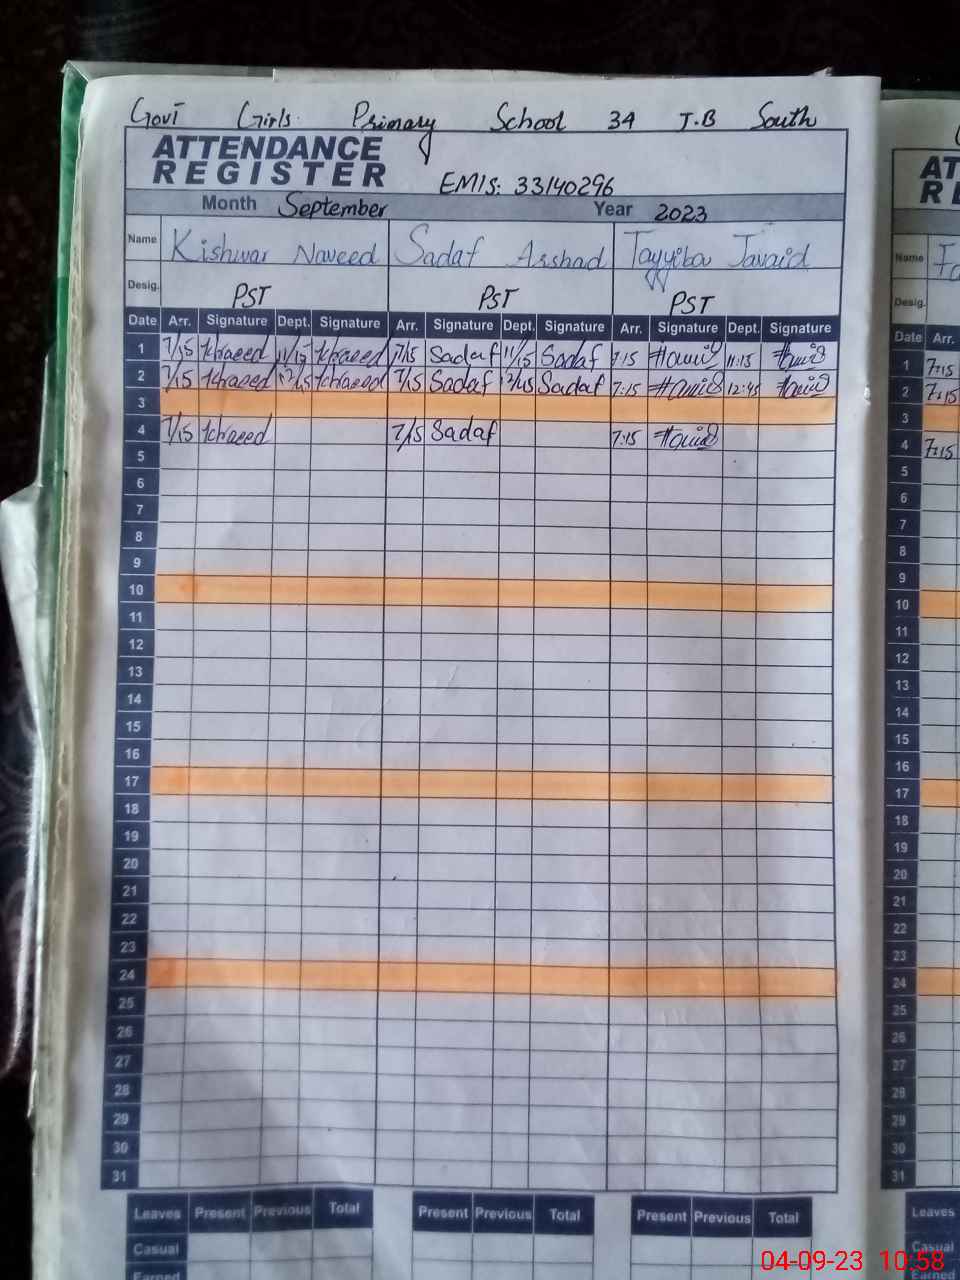 Govt Girls Primary School 34 J.B South
ATTENDANCE
REGISTER
EMIS: 33140296
Month September Year 2023
Name Kishwar Naveed Sadaf Arshad Tayyiba Javaid
Desig. PST PST PST
Date Arr. Signature Dept. Signature Arr. Signature Dept. Signature Arr. Signature Dept. Signature
1 7/15 11/15 7/15 Sadaf 11/15 Sadaf 7:15 11:15
2 7/15 12/45 7/15 Sadaf 12/45 Sadaf 7:15 12:45
3
4 7/15 7/15 Sadaf 7:15
5
6
7
8
9
10
11
12
13
14
15
16
17
18
19
20
21
22
23
24
25
26
27
28
29
30
31
Leaves Present Previous Total Present Previous Total Present Previous Total
Casual
Earned
AT
RE
Name
Desig.
Date Arr.
1 7:15
2 7:15
3
4 7:15
5
6
7
8
9
10
11
12
13
14
15
16
17
18
19
20
21
22
23
24
25
26
27
28
29
30
31
Leaves
Casual
Earned
04-09-23 10:58